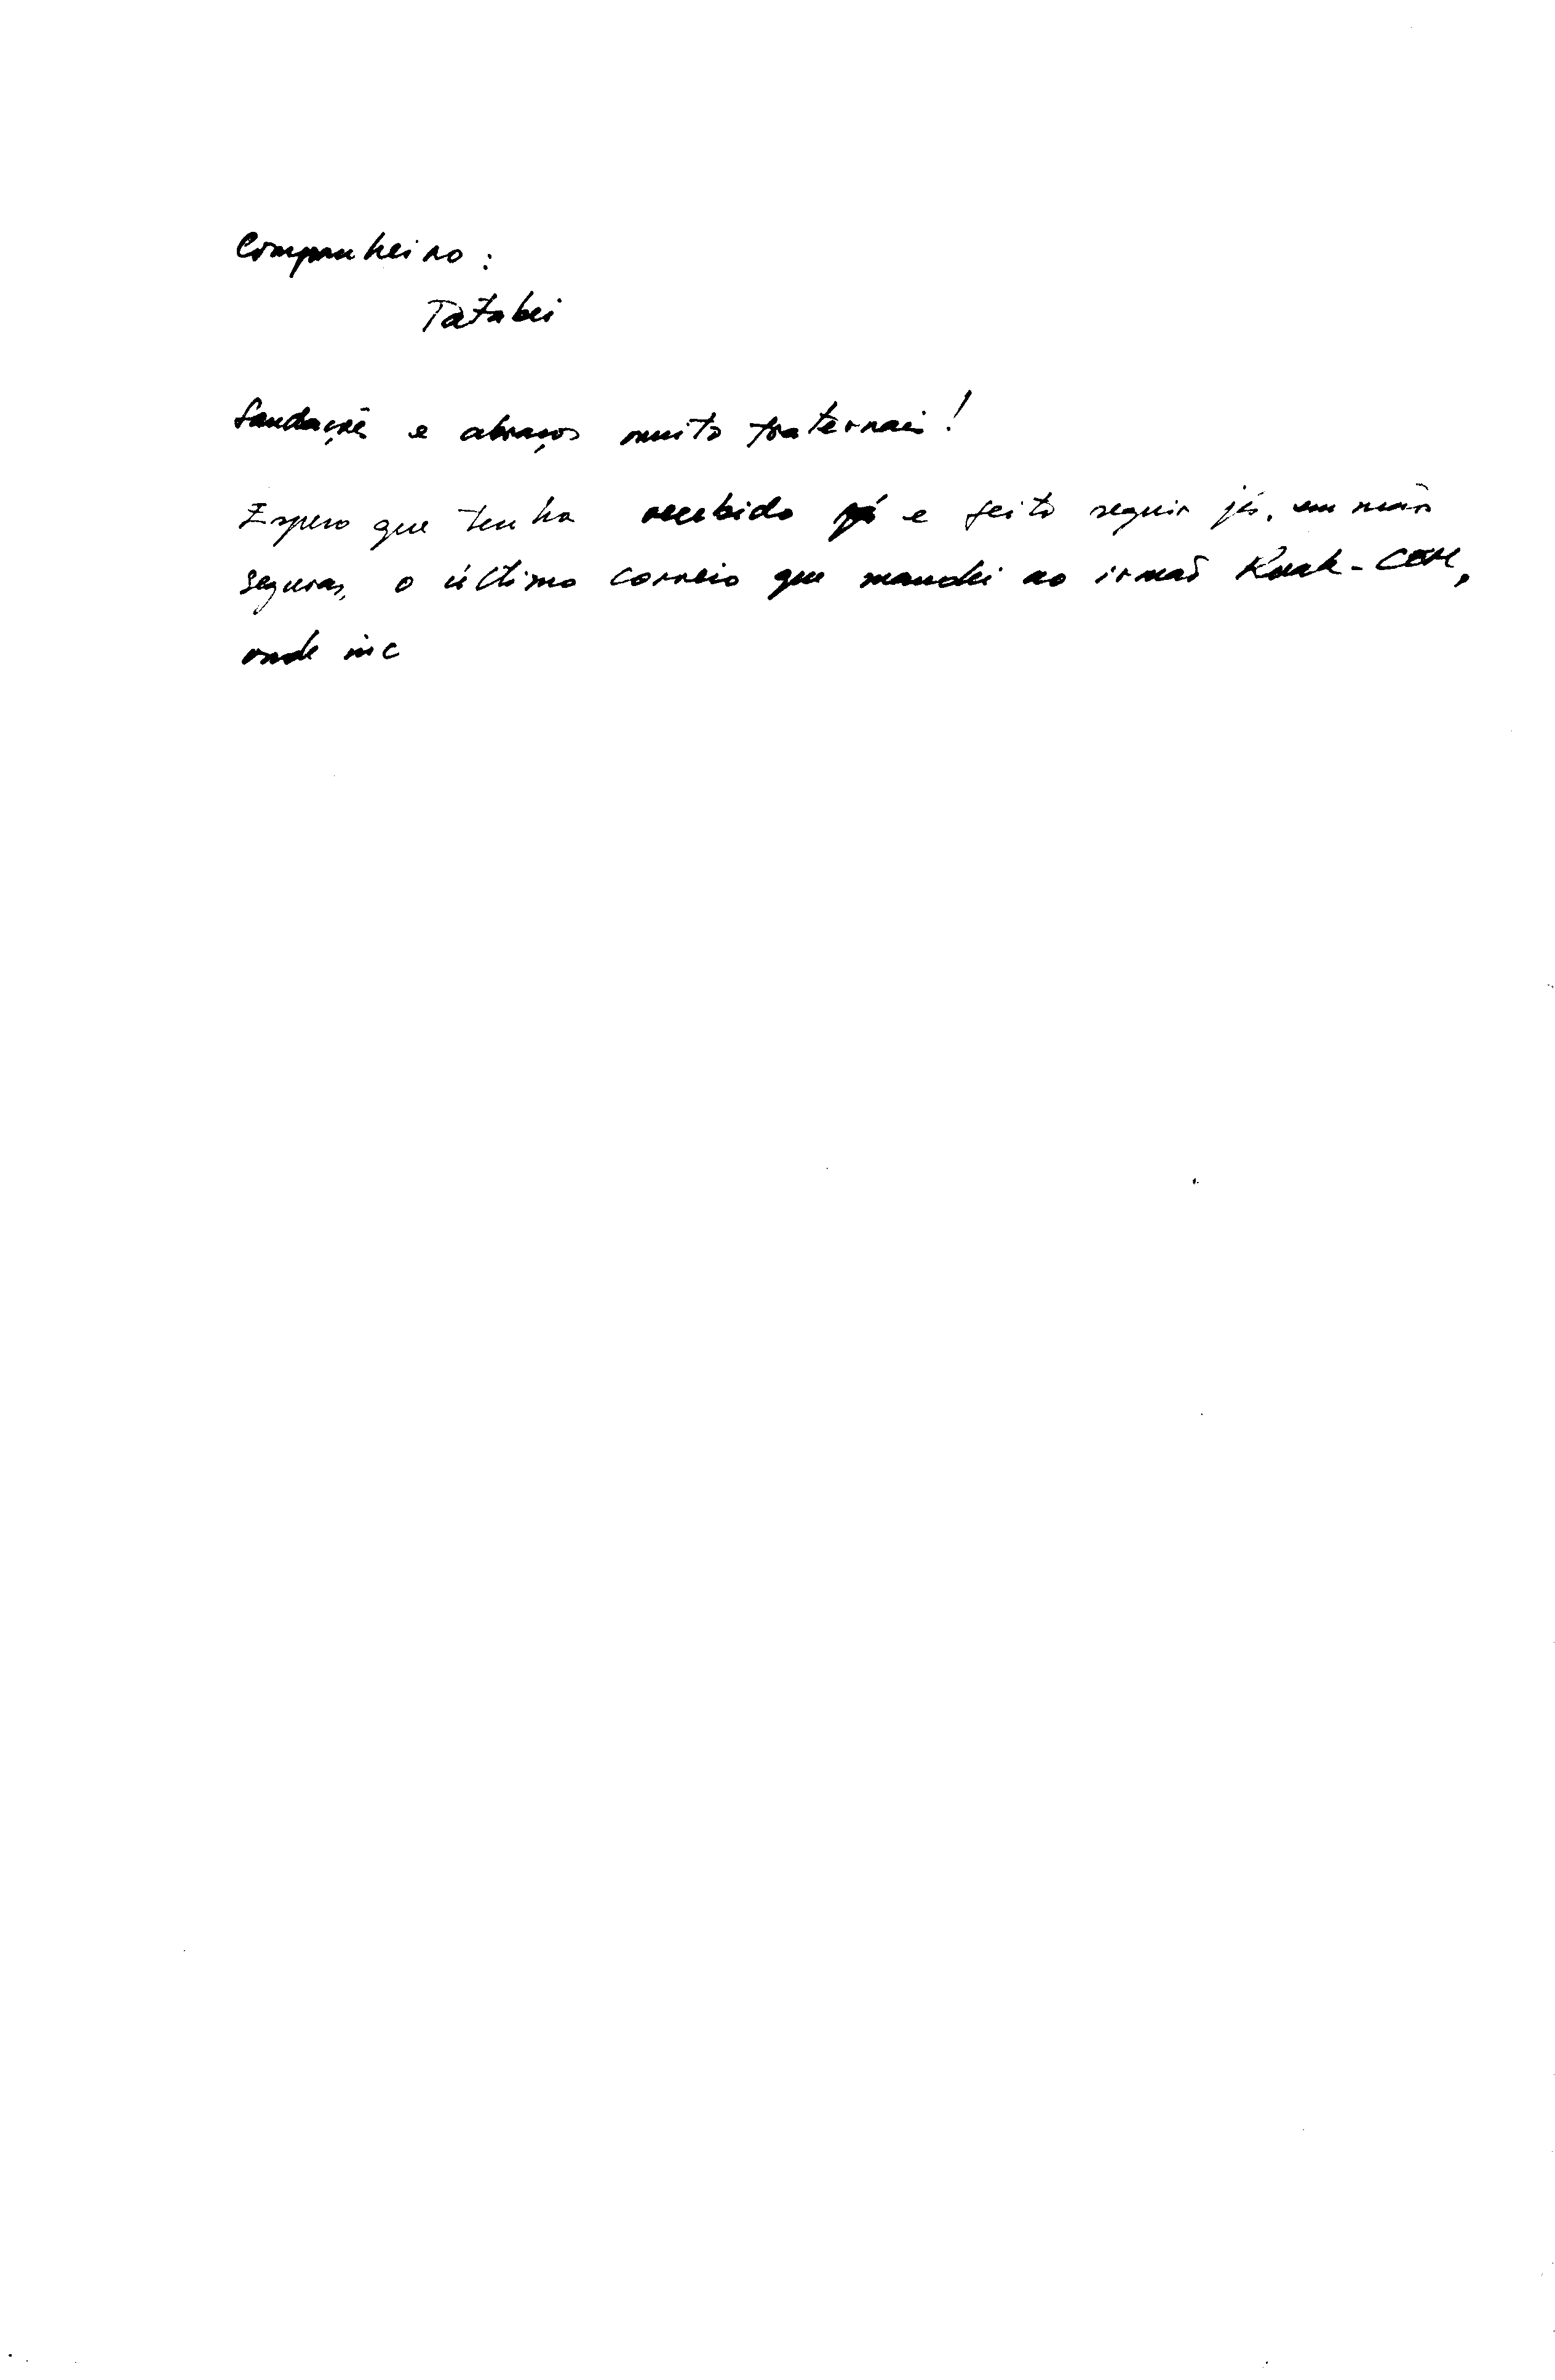 Companheiro:
Tatabei
Saudações e abraços muito fraternais!
Espero que tenha recebido e feito seguir já, em mãos
seguras, o último correio que mandei ao irmão
onde inc